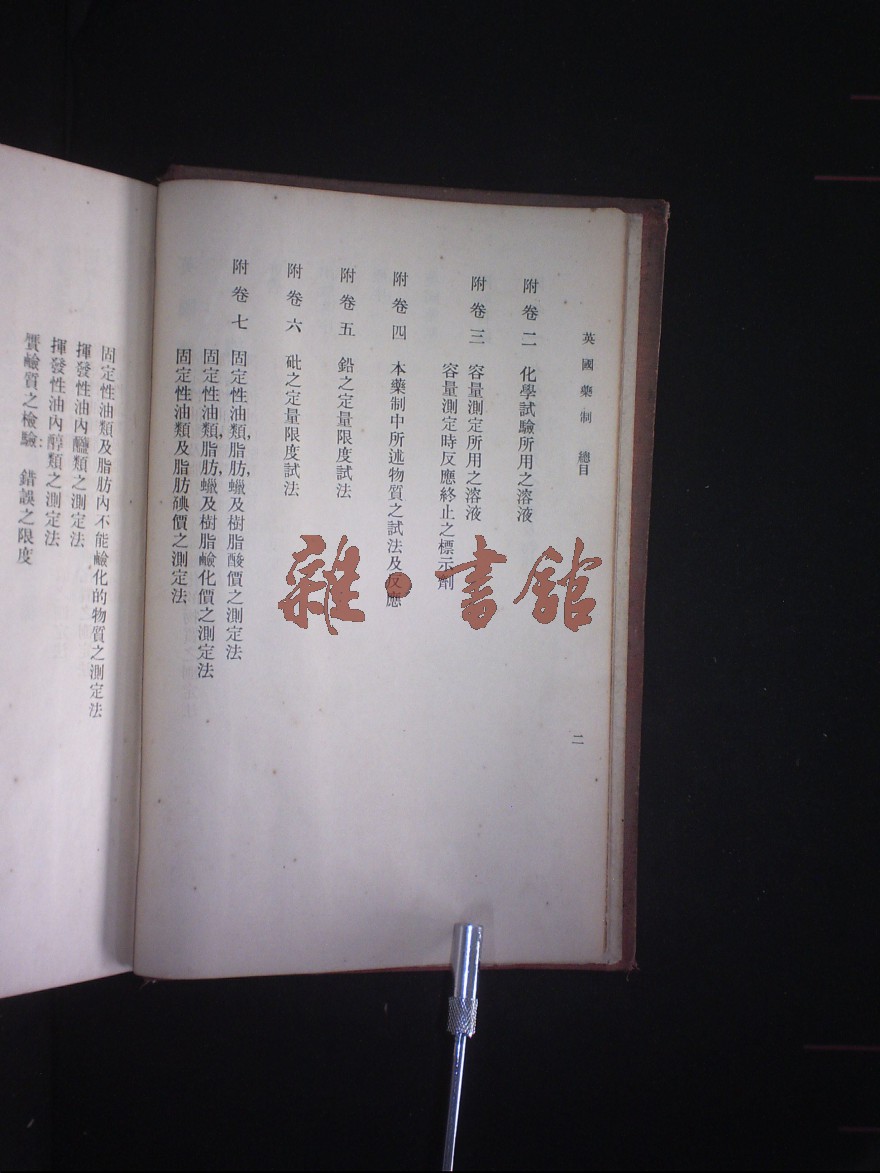 英國藥制 總目
二
附卷二 化學試驗所用之溶液
附卷三 容量測定所用之溶液
容量測定時反應終止之標示劑
附卷四 本藥制中所述物質之試法及反應
附卷五 鉛之定量限度試法
附卷六 砒之定量限度試法
附卷七 固定性油類,脂肪,蠟及樹脂酸價之測定法
固定性油類,脂肪,蠟及樹脂鹼化價之測定法
固定性油類及脂肪碘價之測定法
固定性油類及脂肪內不能鹼化的物質之測定法
揮發性油內醯類之測定法
揮發性油內醇類之測定法
贋鹼質之檢驗 錯誤之限度
雜·書館